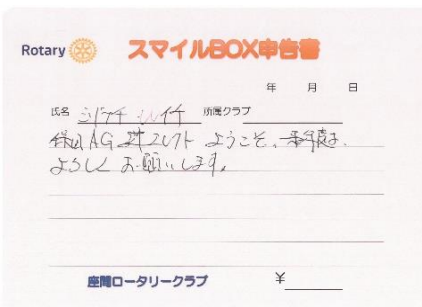 Rotary スマイルBOX申告書
年 月 日
氏名 所属クラブ
AG エレクト ようこそ、
よろしくお願いします。
座間ロータリークラブ ¥